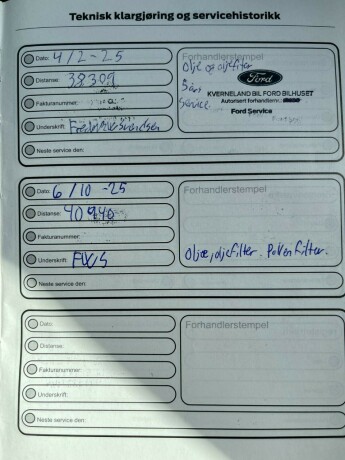 Teknisk klargjøring og servicehistorikk
Dato: 4/2-25
Distanse: 38309
Fakturanummer:
Underskrift:
Neste service den:
Forhandlerstempel
Olje og oljefilter
5års
Service
Ford
KVERNELAND BIL FORD BILHUSET
Autorisert forhandler
Ford Service
Dato: 6/10-25
Distanse: 40940
Fakturanummer:
Underskrift:
Neste service den:
Forhandlerstempel
Olje, oljefilter. Pollenfilter.
Dato:
Distanse:
Fakturanummer
Underskrift:
Neste service den:
Forhandlerstempel